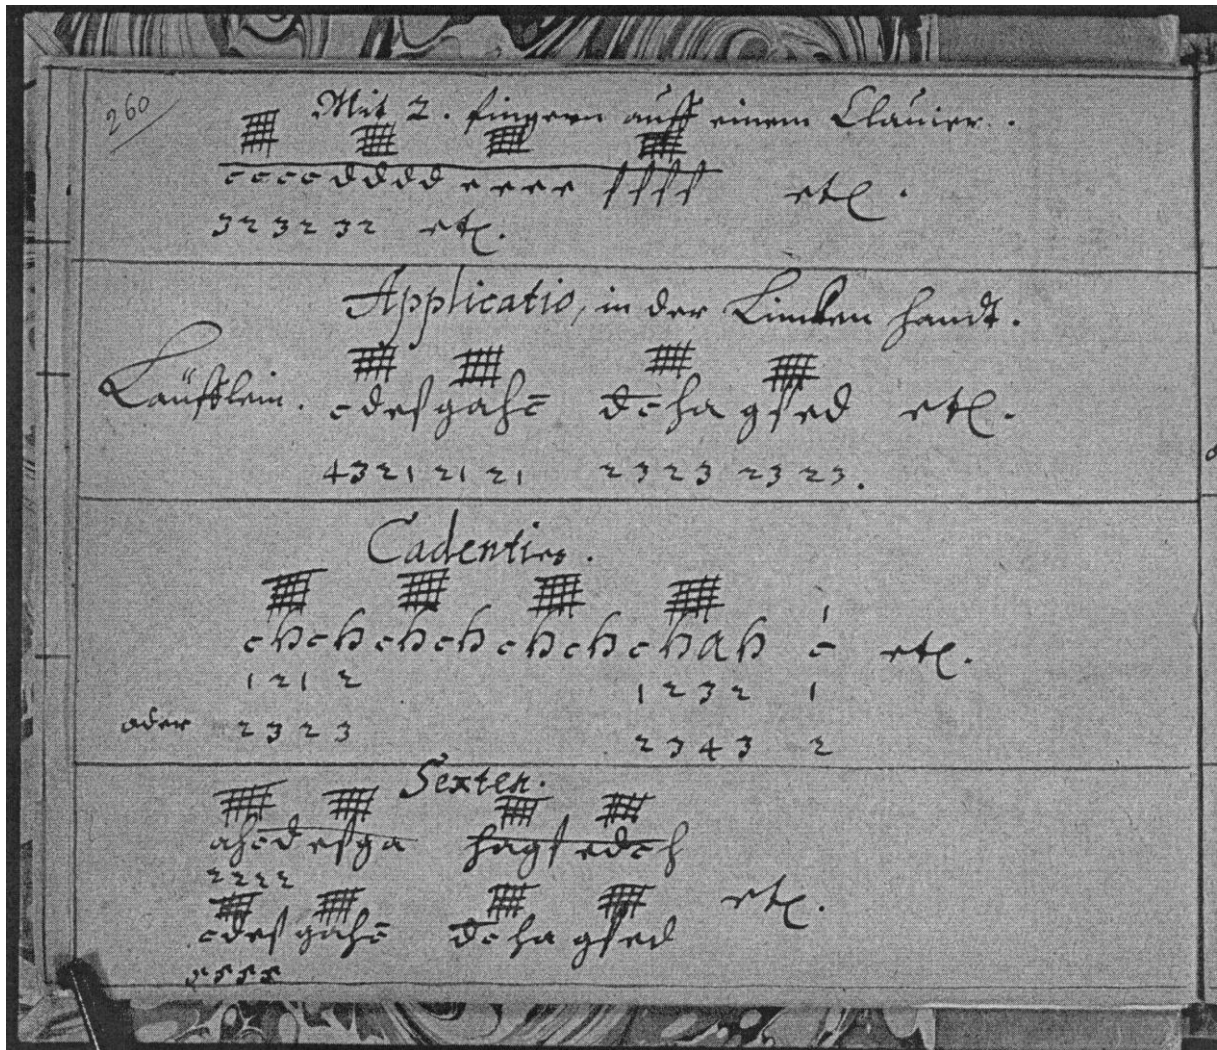 260
Mit 2. fingern auff einem Clauier.
c c c c d d d d e e e e f f f f etc.
3 2 3 2 3 2 etc.
Applicatio, in der Lincken handt.
Läufflein. c d e f g a h c̄ d̄ c̄ h a g f e d etc.
4 3 2 1 2 1 2 1 2 3 2 3 2 3 2 3.
Cadenties.
c h c h c h c h c h c h c h a h c etc.
1 2 1 2 1 2 3 2 1
oder 2 3 2 3 2 3 4 3 2
Sexten.
a h c d e f g a h a g f e d c h
2 2 2 2
c d e f g a h c̄ d̄ c̄ h a g f e d etc.
5 5 5 5